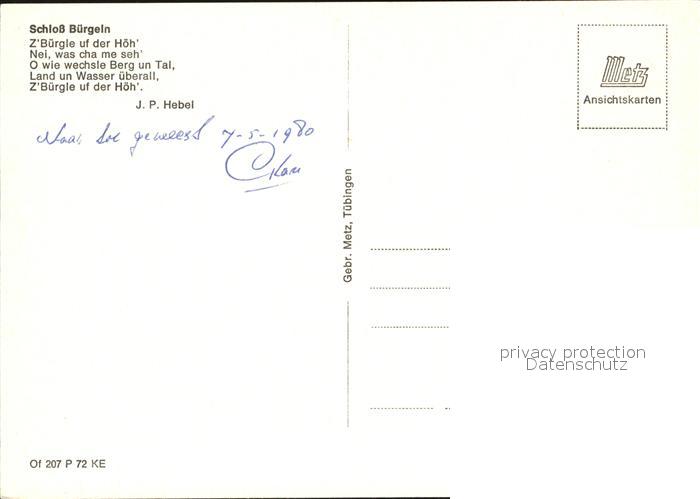 Schloß Bürgeln
Z'Bürgle uf der Höh'
Nei, was cha me seh'
O wie wechsle Berg un Tal,
Land un Wasser überall,
Z'Bürgle uf der Höh'.
J. P. Hebel
geweest 7-5-1980
Metz
Ansichtskarten
Gebr. Metz, Tübingen
privacy protection
Datenschutz
Of 207 P 72 KE